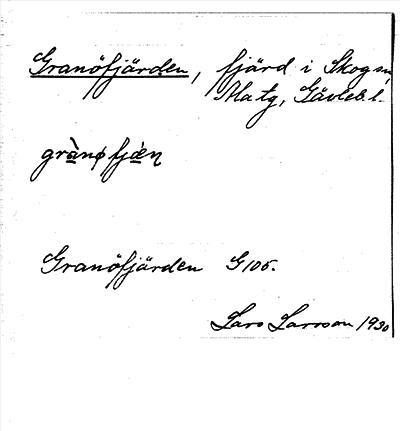 Granöfjärden, fjärd i Skogsm,
Ma tg, Gävleb. l.
grànøfjæ̀ɳ
Granöfjärden G 105.
Lars Larsson 1930